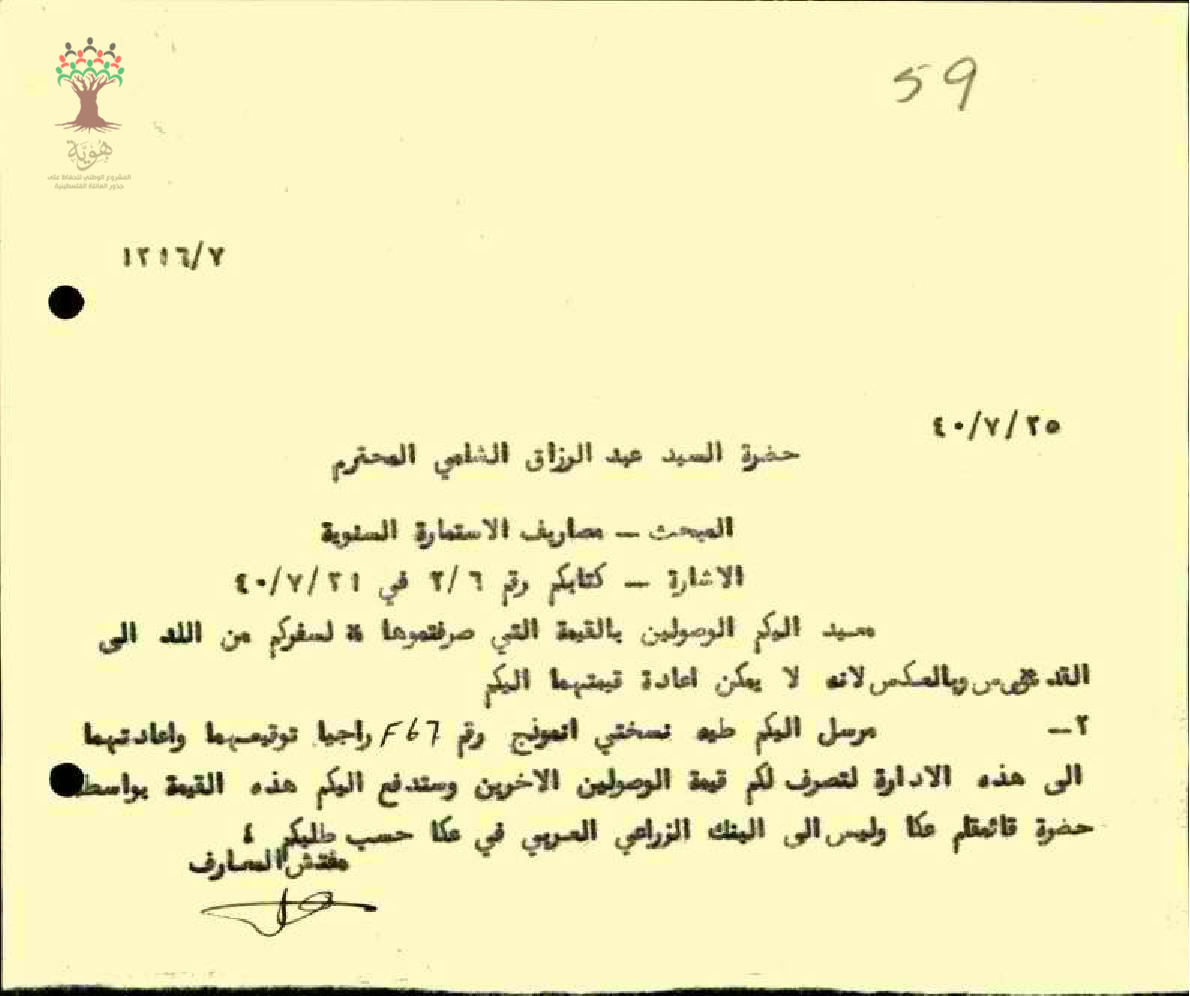 59
هوية
المشروع الوطني للحفاظ على
جذور العائلة الفلسطينية
١٢١٦/٧
٤٠/٧/٢٥
حضرة السيد عبد الرزاق الشامي المحترم
المبحث — مصاريف الاستمارة السنوية
الاشارة — كتابكم رقم ٢/٦ في ٤٠/٧/٢١
معيد اليكم الوصولين بالقيمة التي صرفتموها لسفركم من اللد الى
القدس وبالعكس لانه لا يمكن اعادة قيمتهما اليكم
٢— مرسل اليكم طيه نسختي انموذج رقم F67 راجيا توقيعهما واعادتهما
الى هذه الادارة لتصرف لكم قيمة الوصولين الاخرين وستدفع اليكم هذه القيمة بواسطة
حضرة قائمقام عكا وليس الى البنك الزراعي العربي في عكا حسب طلبكم ،
مفتش المعارف